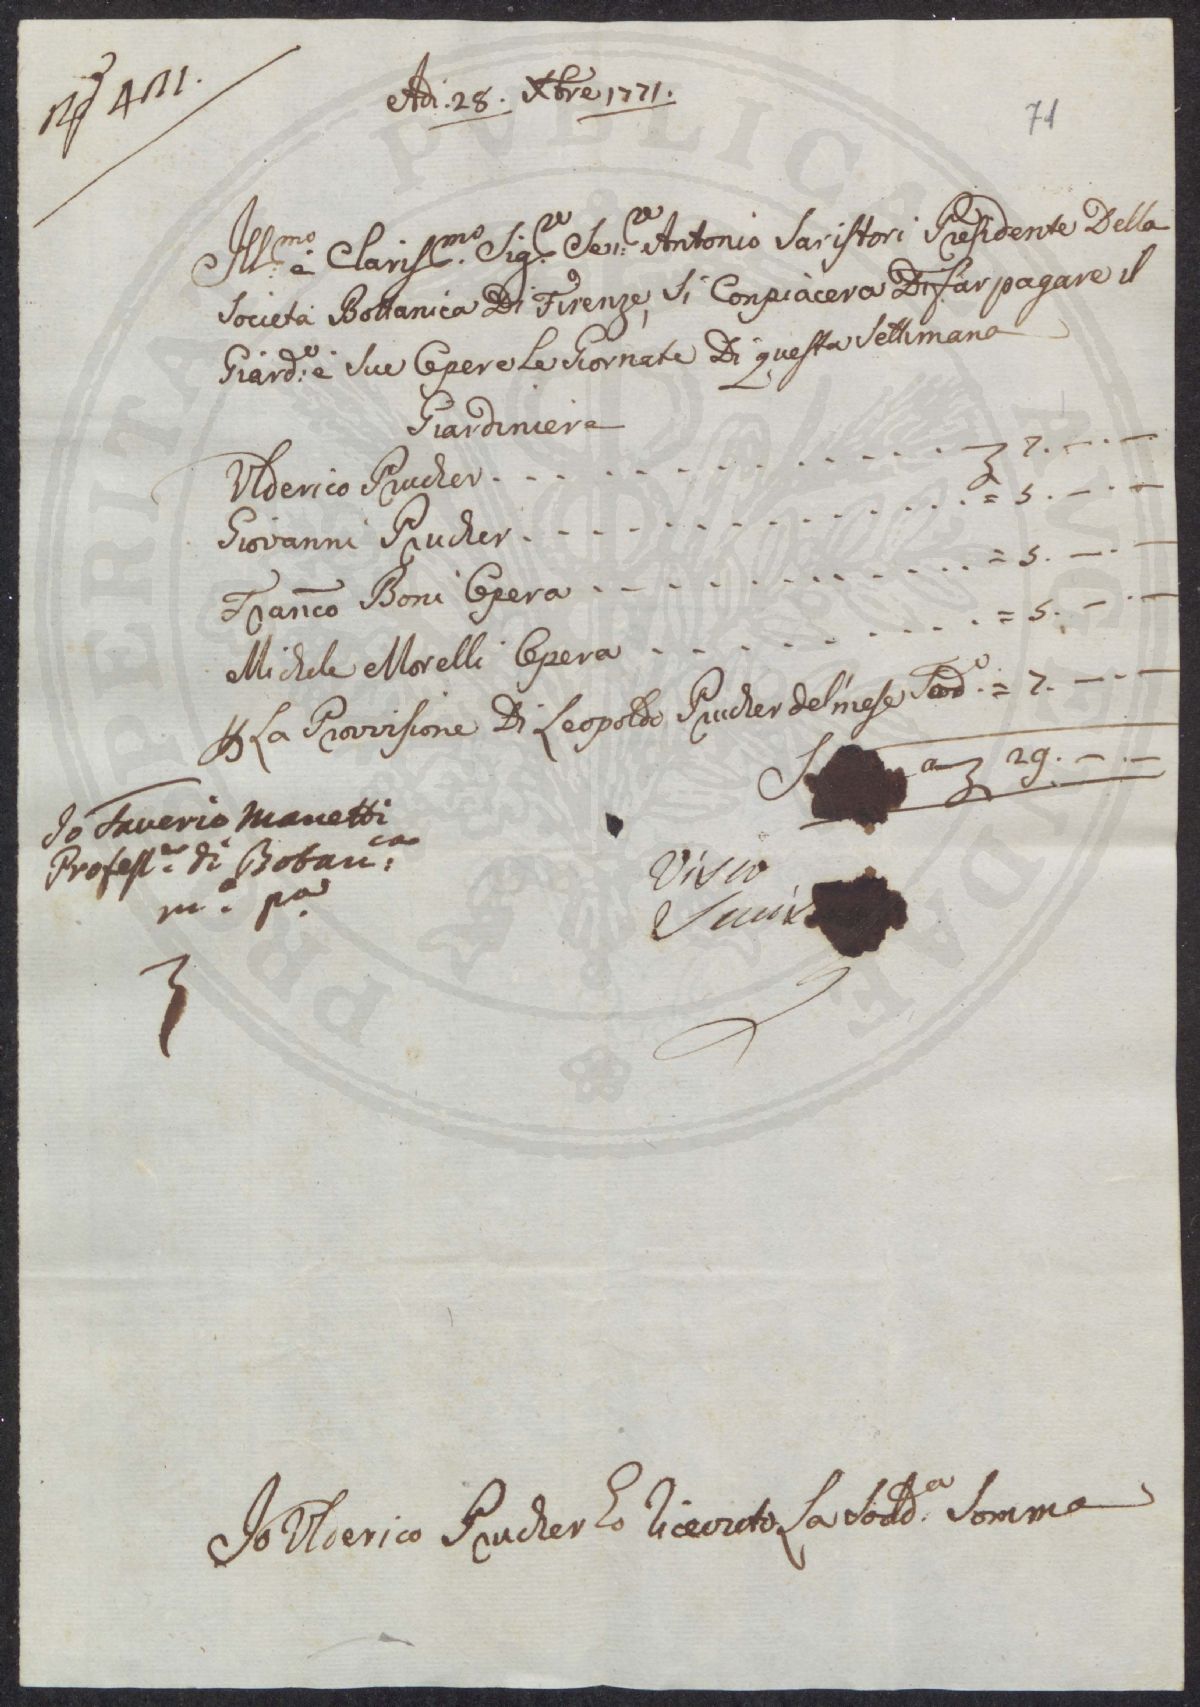 N.º 471.
Adi. 28. Xbre 1771.
71
Ill:mo e Clariss:mo Sig:re Sen:re Antonio Saristori Presidente Della
Societa Bottanica Di Firenze, Si Conpiacera Di far pagare il
Giard:e e Sue Opere Le Giornate Di questa Settimana
Giardiniera
Ulderico Prucker . . . . . . . . . . . . . 7. — . —
Giovanni Prucker . . . . . . . . . . . . = 5. — . —
Franco Boni Opera . . . . . . . . . . = 5. — . —
Michele Morelli Opera . . . . . . . . = 5. — . —
La Provvisione Di Leopoldo Prucker del mese Sod:o = 7. — . —
29. — . —
Io Saverio Manetti
Profess:re di Botan:ca
m:o pa
Visto
Io Ulderico Prucker ho Riceuto La Sodd:a Somma
PRO PERITATI PVBLICAE AVGENDAE